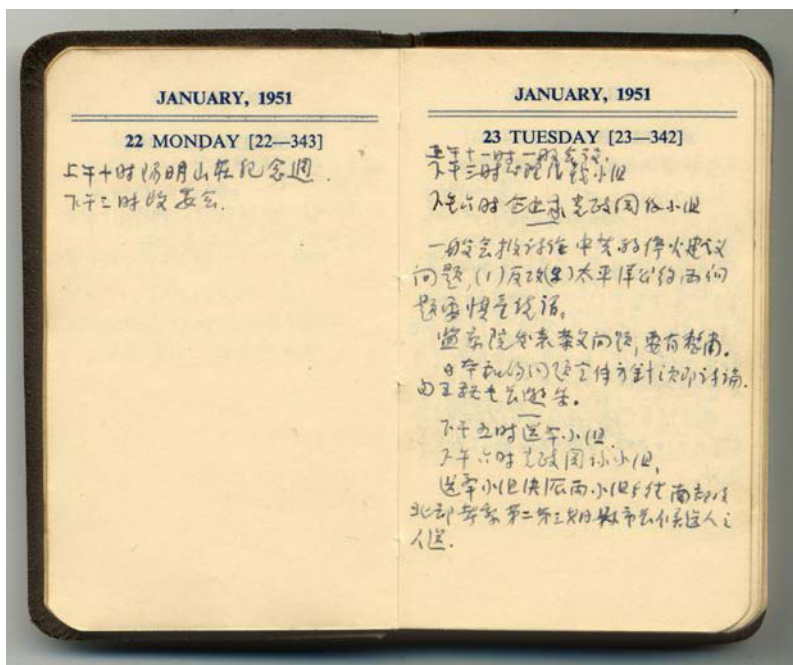 JANUARY, 1951
22 MONDAY [22—343]
上午十时阳明山庄纪念週.
下午三时改委会.
JANUARY, 1951
23 TUESDAY [23—342]
上午十一时一般会谈.
下午三时小组
下午六时党政关系小组
一般会谈讨论中共的停火建议
问题,(1)反攻(2)太平洋公约两问
题需慎重统一.
监察院问题,要有整肃.
日本和约问题方针决即讨论.
由王
下午五时选举小组.
下午六时党政关系小组.
选举小组决派两小组分往南部及
北部考察第二第三期县市长候选人之
人选.